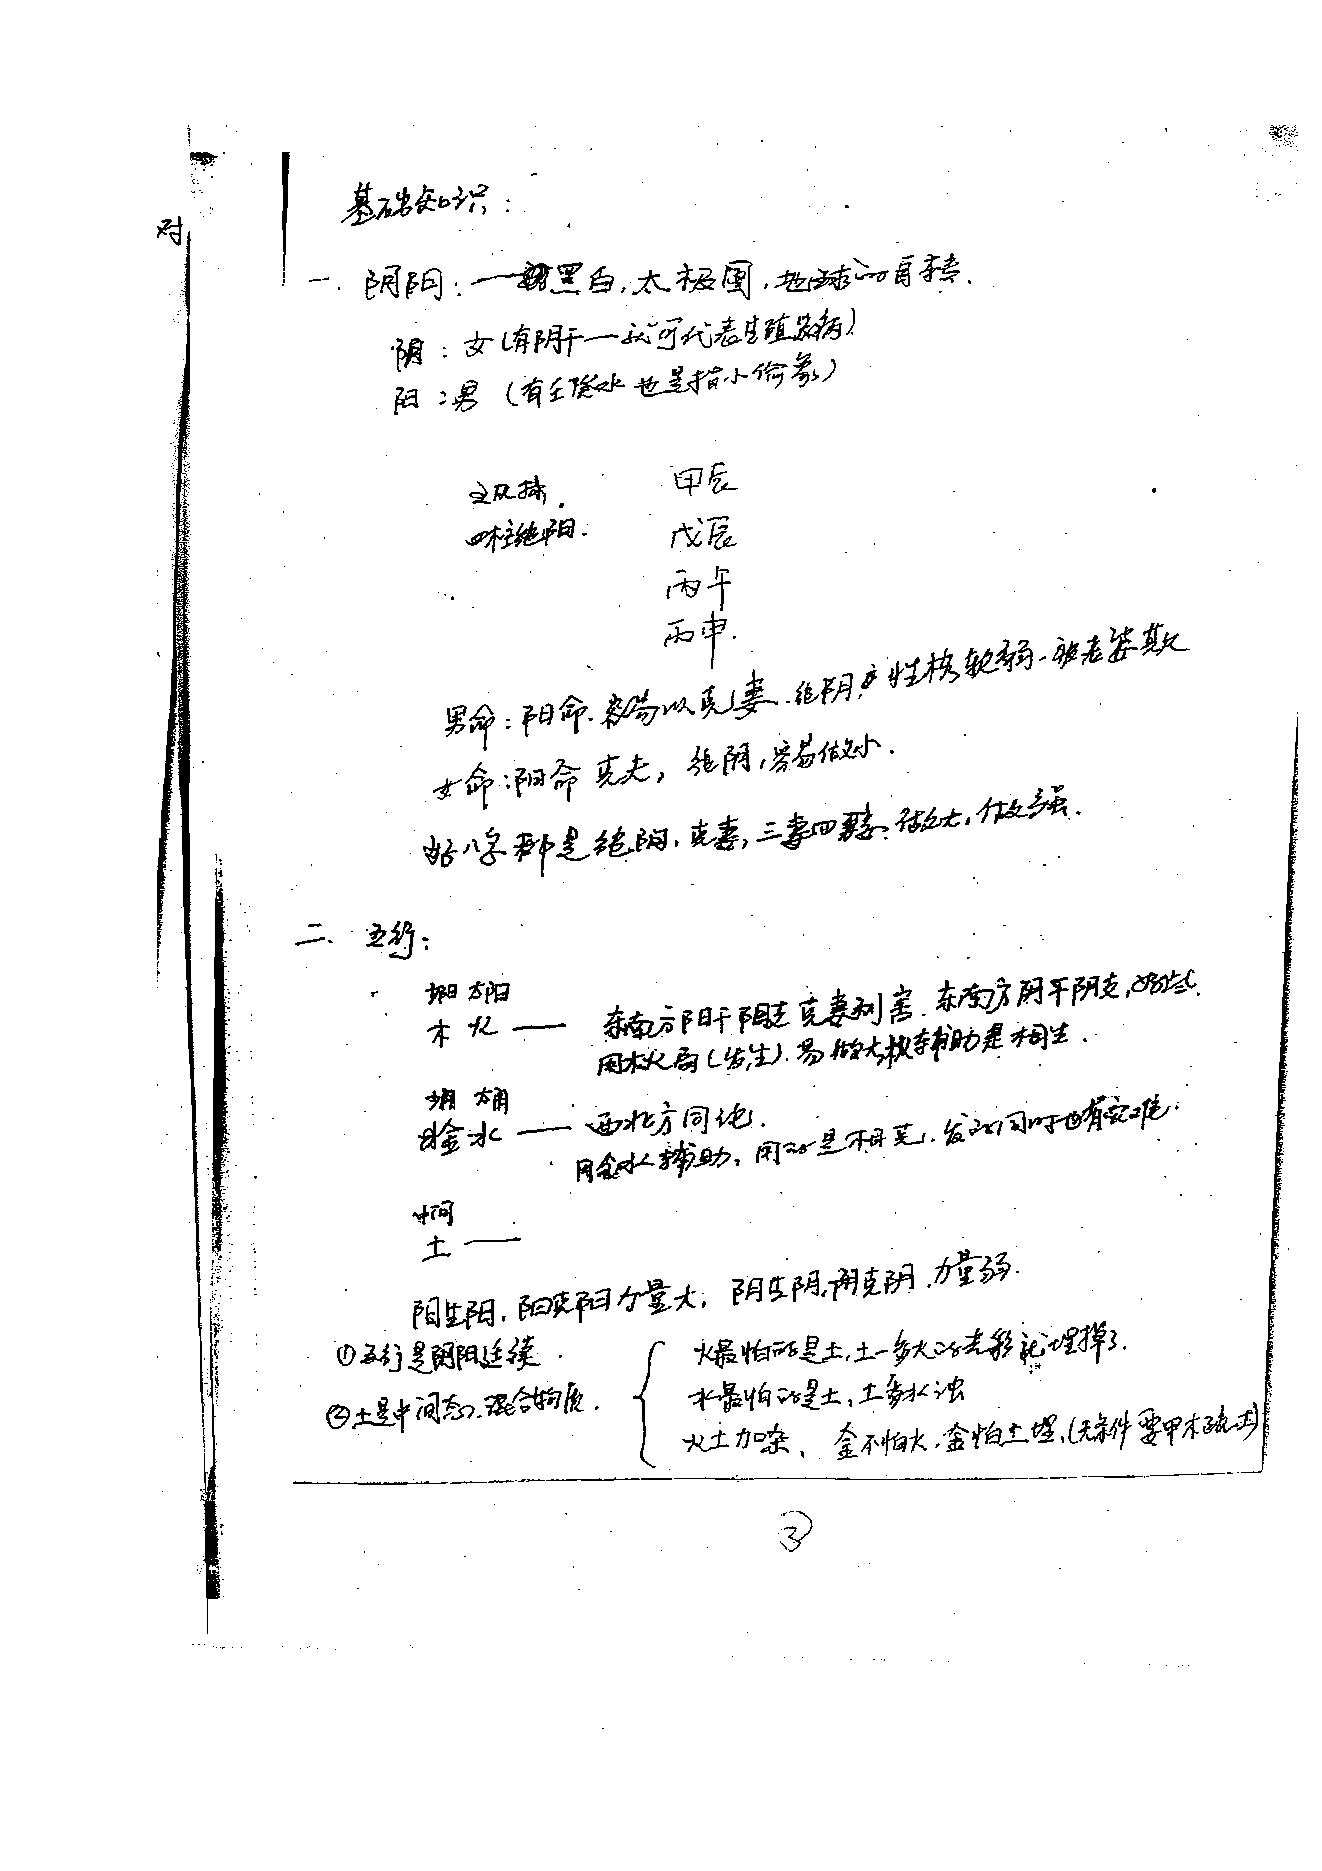 对
基础知识：
一. 阴阳：一黑白，太极图，地球的自转.
阴：女（有阴干一就可代表生殖器病）
阳：男（有壬癸水也是指小偷象）
甲辰
四柱纯阳. 戊辰
丙午
丙申.
男命：阳命.容易以克妻.纯阴，性格软弱.被老婆欺
女命：阳命克夫，纯阴，容易做小.
好八字都是纯阴，克妻，三妻四妾，做大，做强.
二. 五行：
少阳 太阳
木 火 —— 东南方阳干阳支克妻利害.东南方阴干阴支，好些.
用木火局（发生）.易做大 辅助是相生.
少阴 太阴
金水 —— 西北方同论.
用金水辅助，用的是相克，发的同时也有灾难.
中间
土 ——
阳生阳，阳克阳力量大，阴生阴，阴克阴，力量弱.
①五行是阴阳延续. 火最怕的是土，土一多火的光彩就埋掉了.
②土是中间态，混合物质. 水最怕的是土，土多水浊
火土加杂、金不怕火.金怕土埋，（无条件要甲木疏土）
③